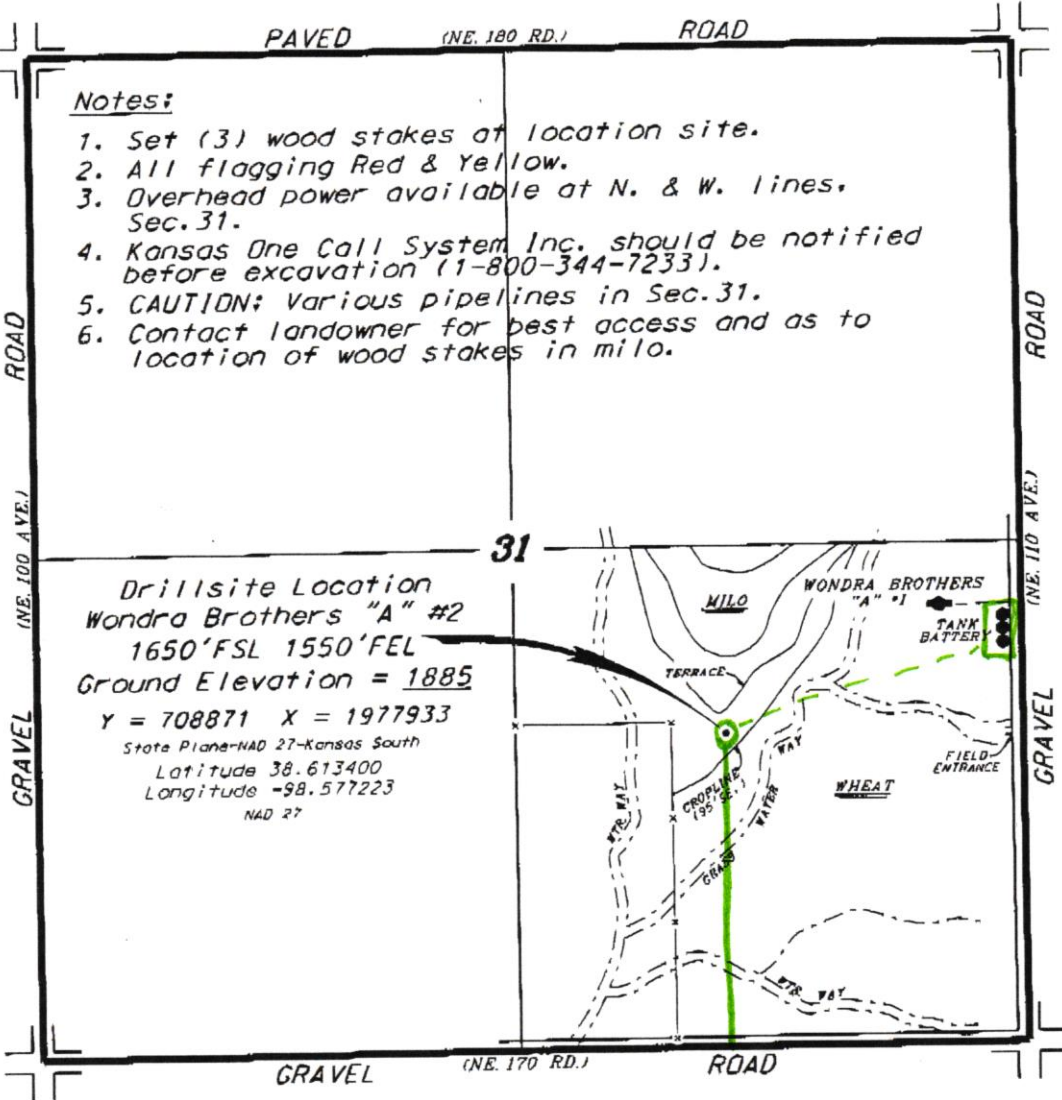 PAVED (NE. 180 RD.) ROAD
Notes:
1. Set (3) wood stakes at location site.
2. All flagging Red & Yellow.
3. Overhead power available at N. & W. lines.
Sec.31.
4. Kansas One Call System Inc. should be notified
before excavation (1-800-344-7233).
5. CAUTION: Various pipelines in Sec.31.
6. Contact landowner for best access and as to
location of wood stakes in milo.
ROAD
(NE. 100 AVE.)
GRAVEL
ROAD
(NE. 110 AVE.)
GRAVEL
31
Drillsite Location
Wondra Brothers "A" #2
1650'FSL 1550'FEL
Ground Elevation = 1885
Y = 708871 X = 1977933
State Plane-NAD 27-Kansas South
Latitude 38.613400
Longitude -98.577223
NAD 27
MILO
WONDRA BROTHERS
"A" #1
TANK
BATTERY
TERRACE
FIELD
ENTRANCE
WHEAT
CROPLINE
(95' SE.)
GRASS
WATER
WAY
WTR WAY
WTR WAY
GRAVEL (NE. 170 RD.) ROAD